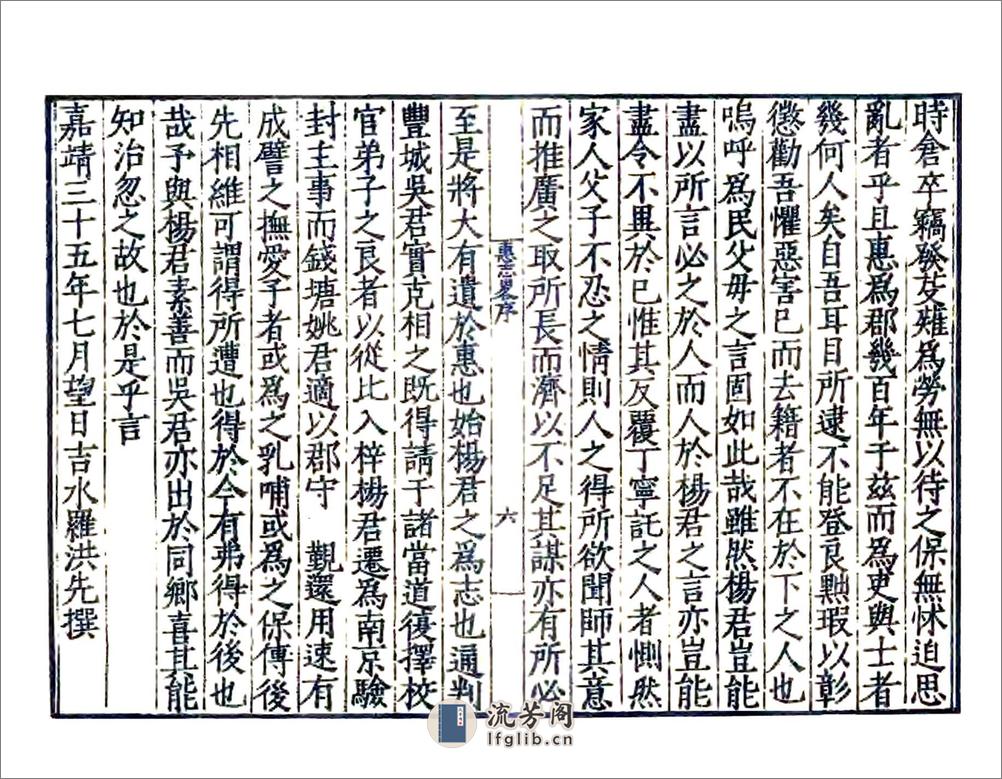 時倉卒竊發芟薙為勞無以待之保無怵迫思
亂者乎且惠為郡幾百年于茲而為吏與士者
幾何人矣自吾耳目所逮不能登良黜瑕以彰
懲勸吾懼惡害已而去籍者不在於下之人也
嗚呼為民父毋之言固如此哉雖然楊君豈能
盡以所言必之於人而人於楊君之言亦豈能
盡令不異於已惟其反覆丁寧託之人者惻然
家人父子不忍之情則人之得所欲聞師其意
而推廣之取所長而濟以不足其謀亦有所必
惠志畧序
六
至是將大有遺於惠也始楊君之為志也通判
豐城吳君實克相之既得請于諸當道復擇校
官弟子之良者以從比入梓楊君遷為南京驗
封主事而錢塘姚君適以郡守 覲還用速有
成譬之撫愛子者或為之乳哺或為之保傅後
先相維可謂得所遭也得於今有弗得於後也
哉予與楊君素善而吳君亦出於同鄉喜其能
知治忽之故也於是乎言
嘉靖三十五年七月望日吉水羅洪先撰
流芳阁
lfglib.cn